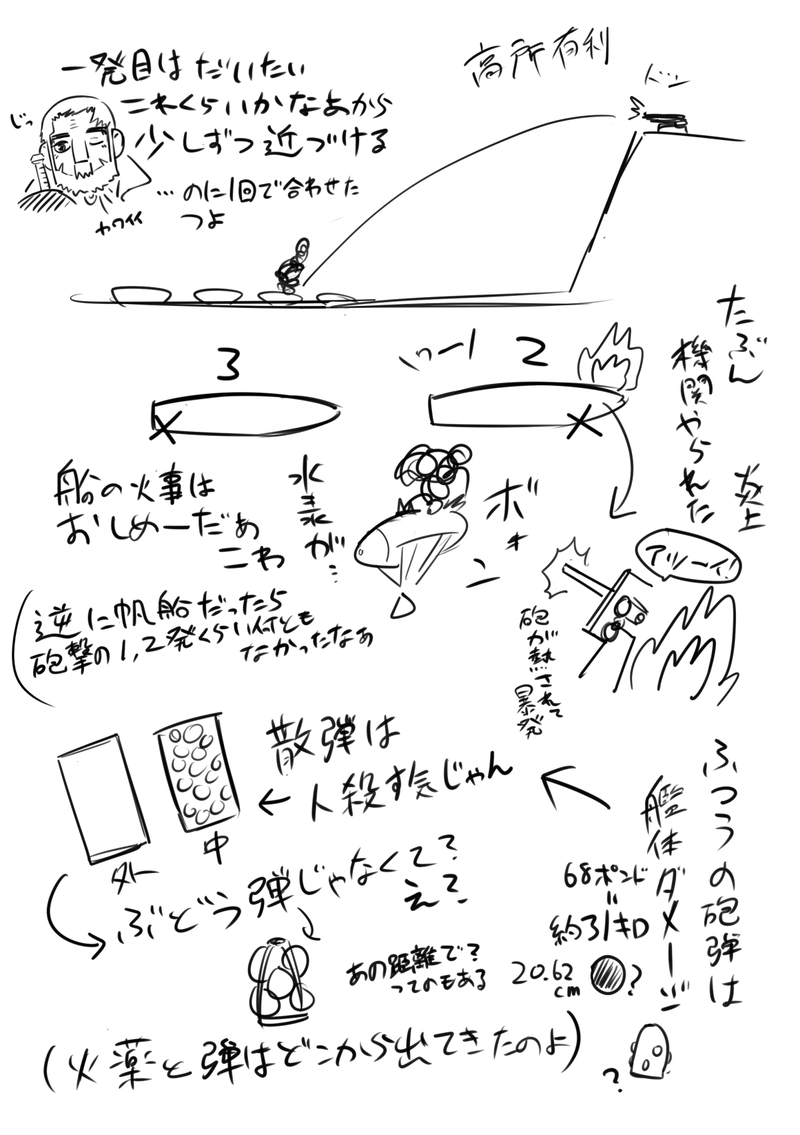 高所有利
ドン
一発目は だいたい
これくらいかなあから
少しずつ近づける
じっ
…のに1回で合わせた
つよ
カワイイ
3
2
たぶん
機関やられた
炎上
船の火事は
おしめーだぁ
こわ
水蒸気が…
ボン
アツーイ!
砲が熱されて
暴発
逆に帆船だったら
砲撃の1,2発くらい何とも
なかったなぁ
散弾は
人殺す気じゃん
外
中
ぶどう弾じゃなくて?
え?
あの距離で?
ってのもある
ふつうの砲弾は
艦体ダメージ
68ポンド
=
約31キロ
20.62
cm
?
?
(火薬と弾はどこから出てきたのよ)